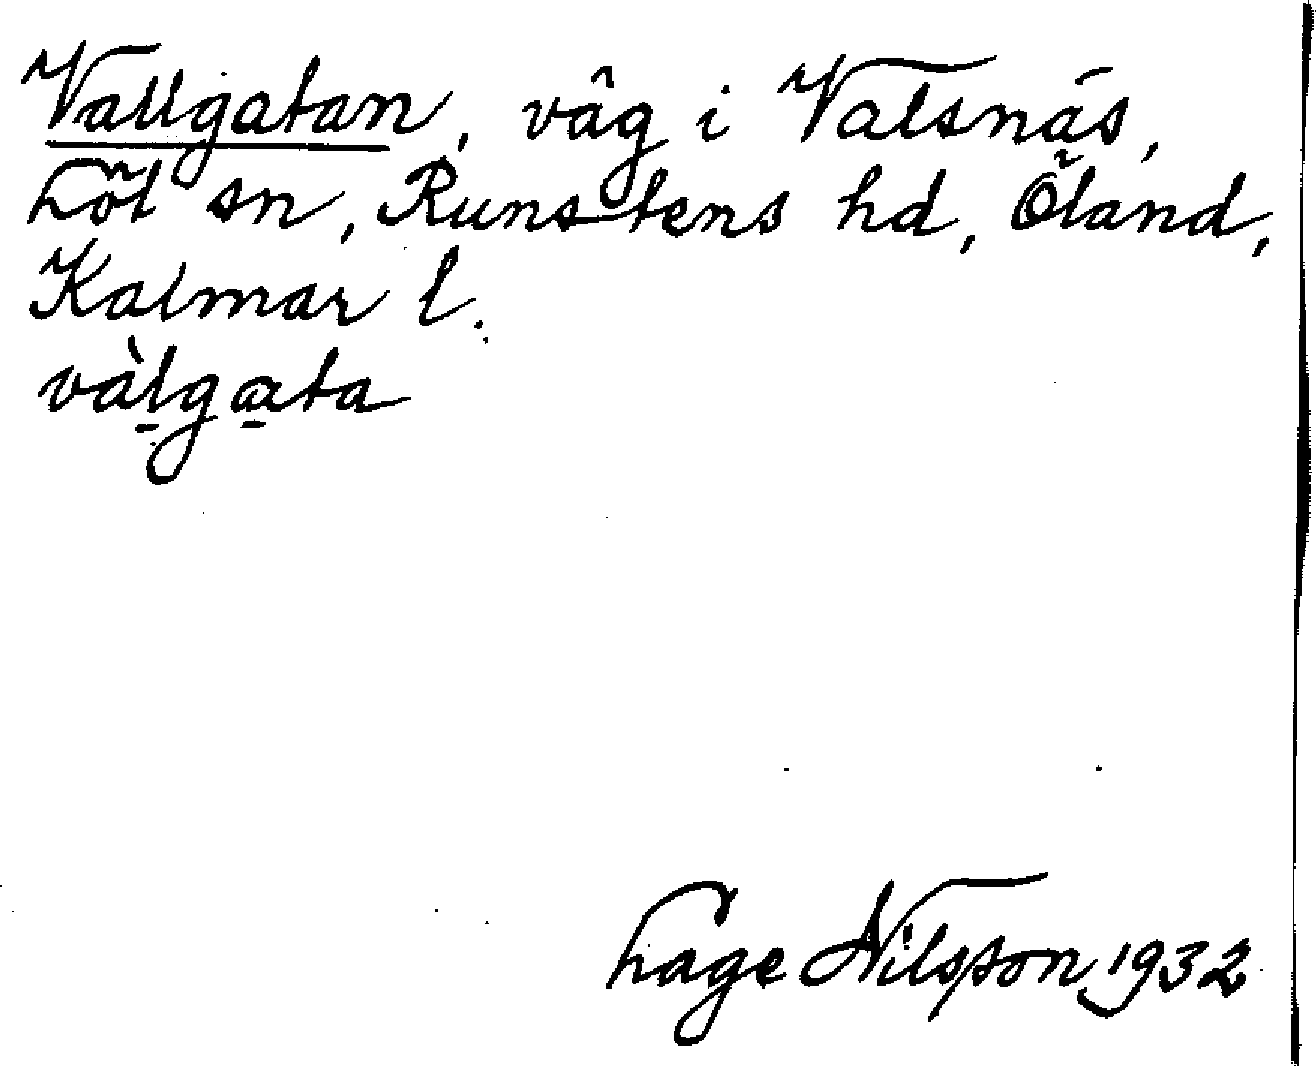 Vallgatan, väg i Valsnäs,
Löt sn, Runstens hd, Öland,
Kalmar l.
vàlgata
Hage Nilsson 1932